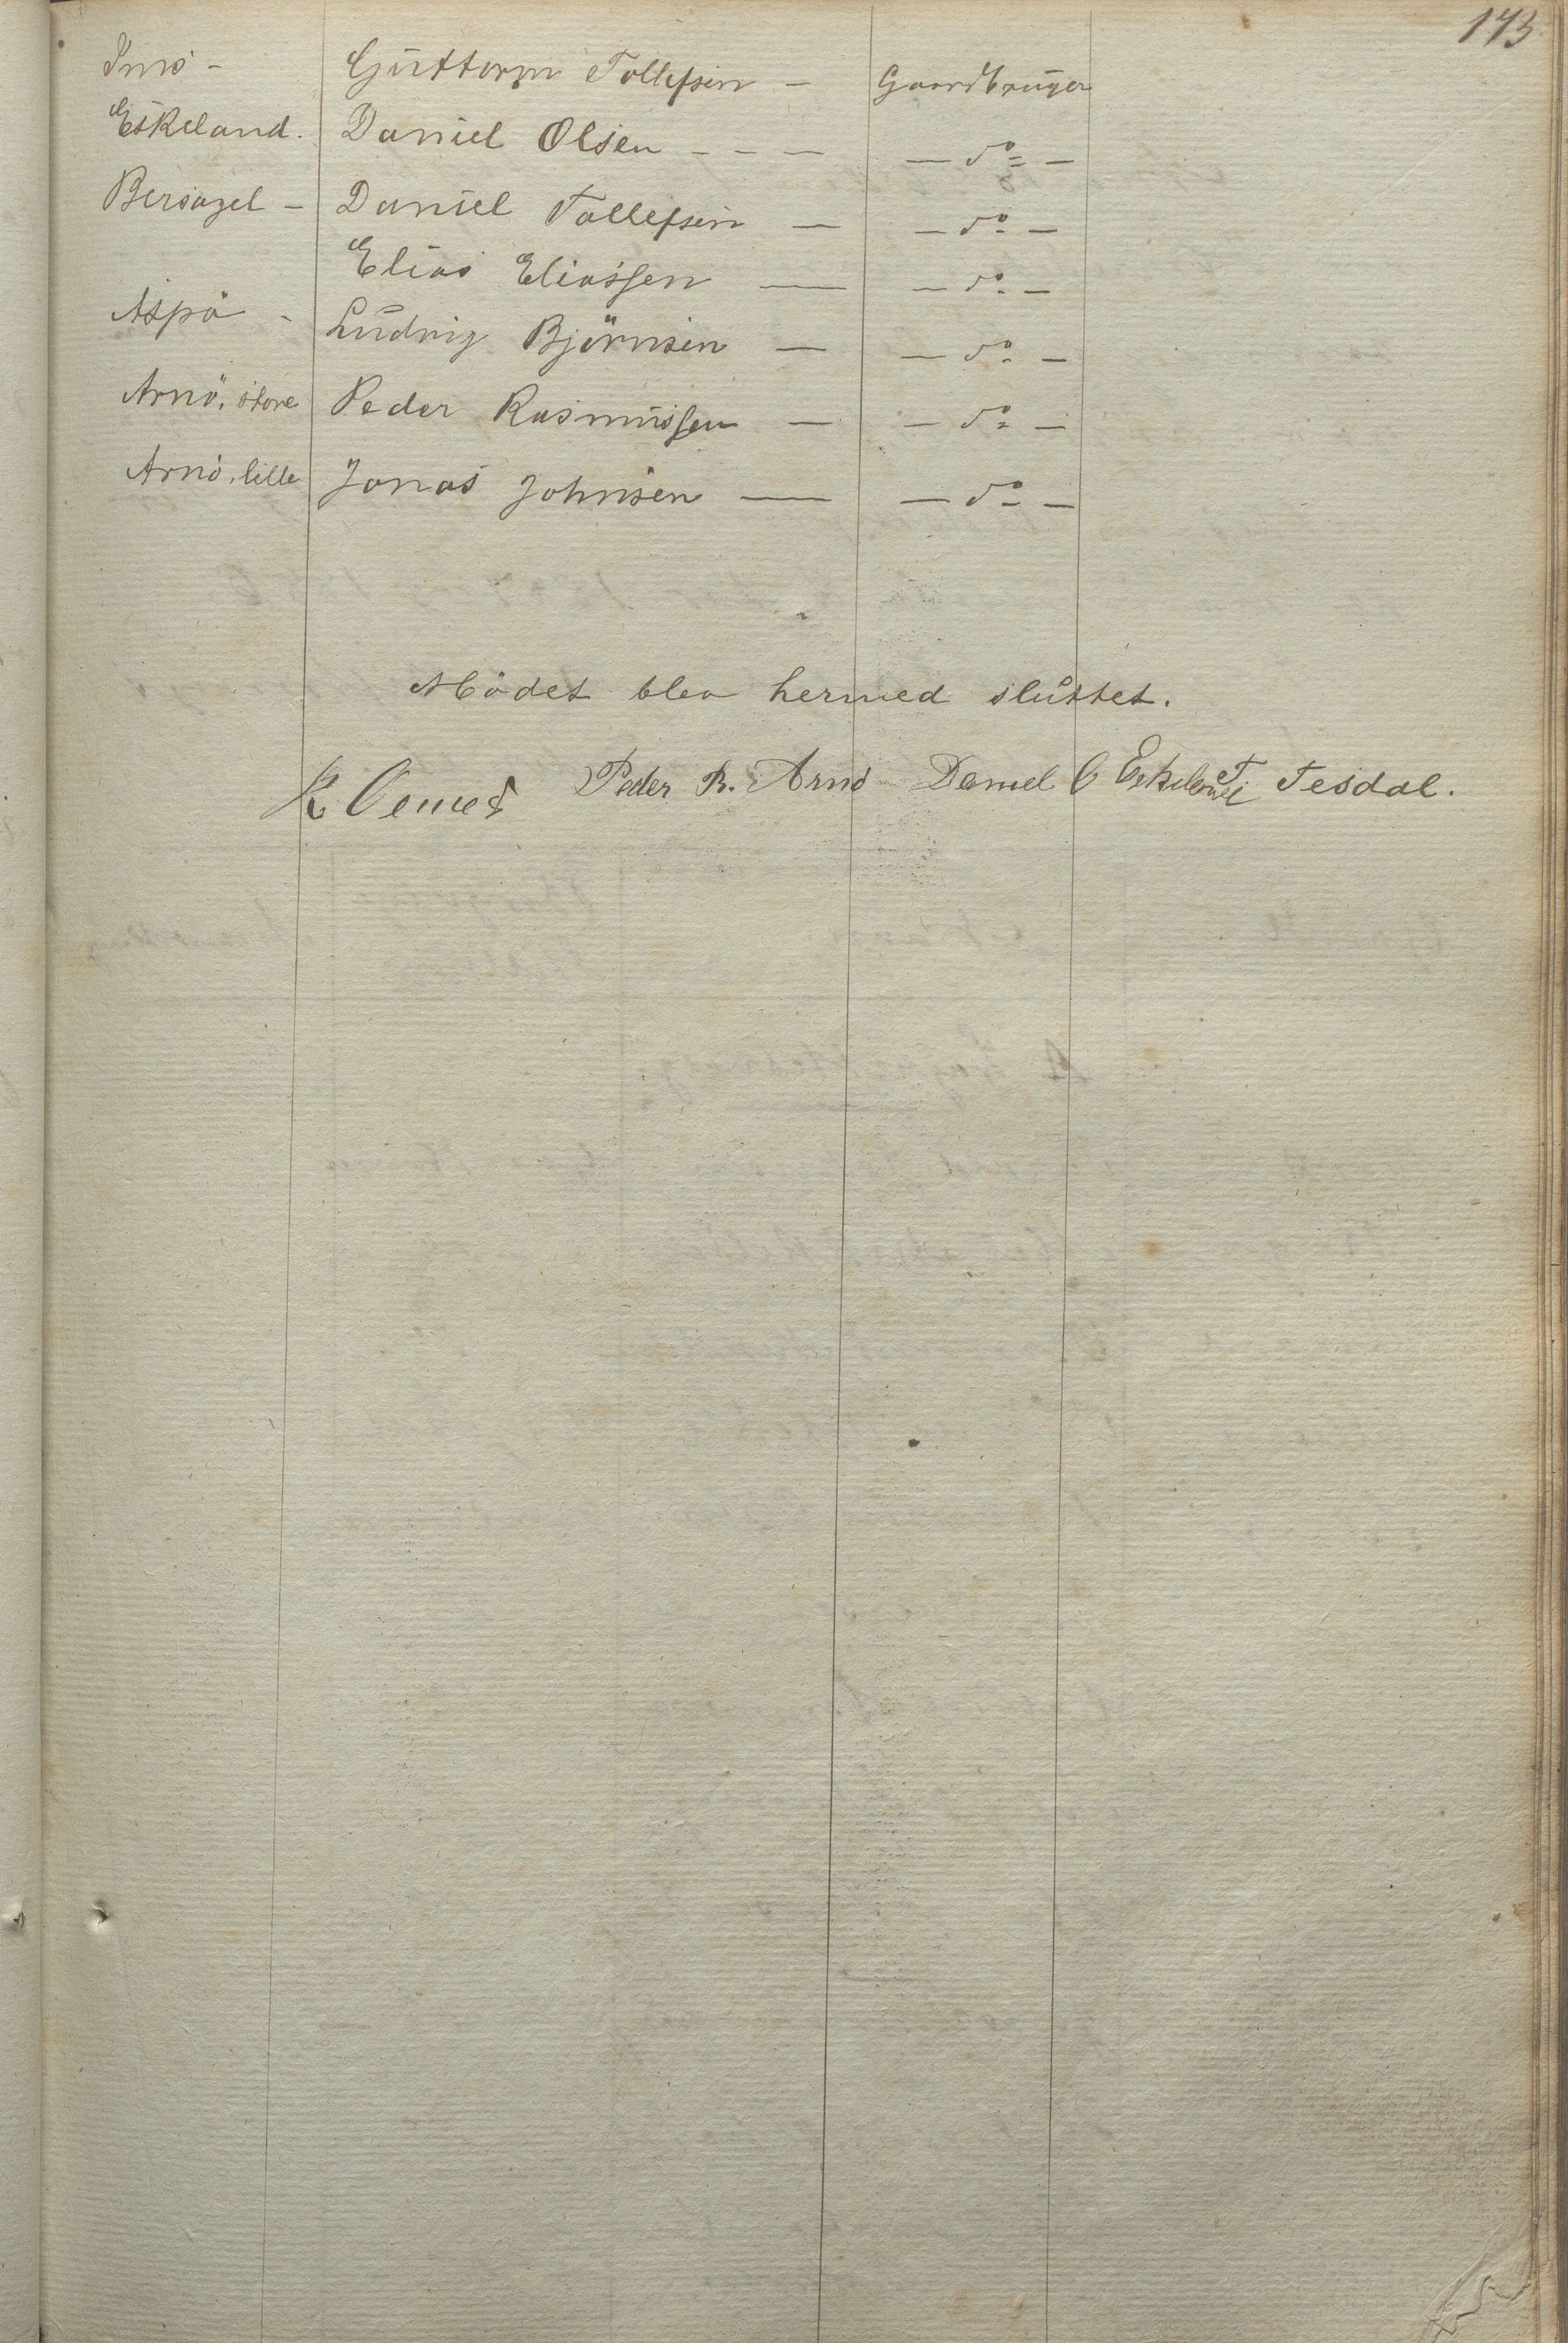 173
Imsö - Guttorm Tollefsen - Gaardbruger
Eskeland. Daniel Olsen - - - - do -
Bersagel - Daniel Tollefsen - - do -
Elias Eliassen - - do -
Aspö - Ludvig Björnsen - - do -
Arnö, store Peder Rasmussen - - do -
Arnö, lille Jonas Johnsen - - do -
Mödet blev hermed sluttet.
Peder R. Arnö Daniel O Eskeland T Tesdal.